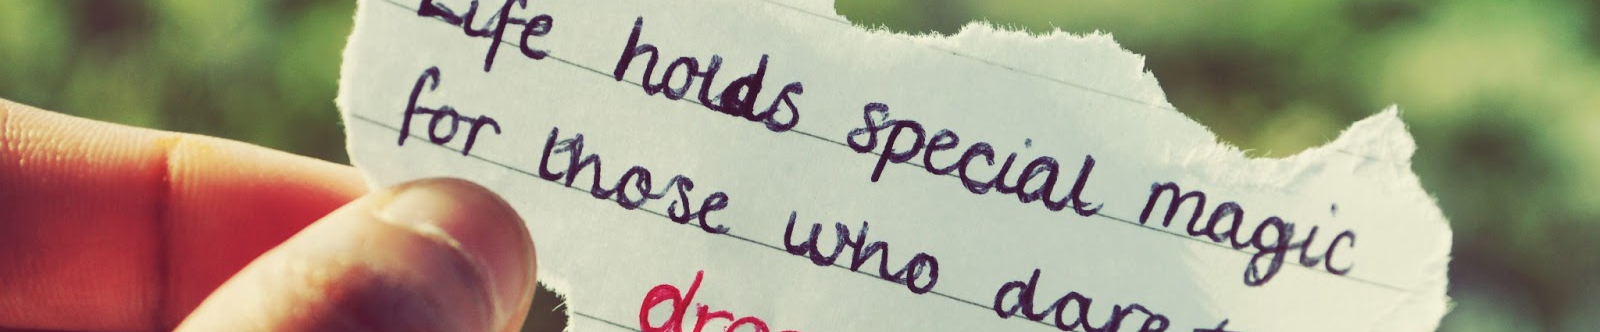 Life holds special magic
for those who dare